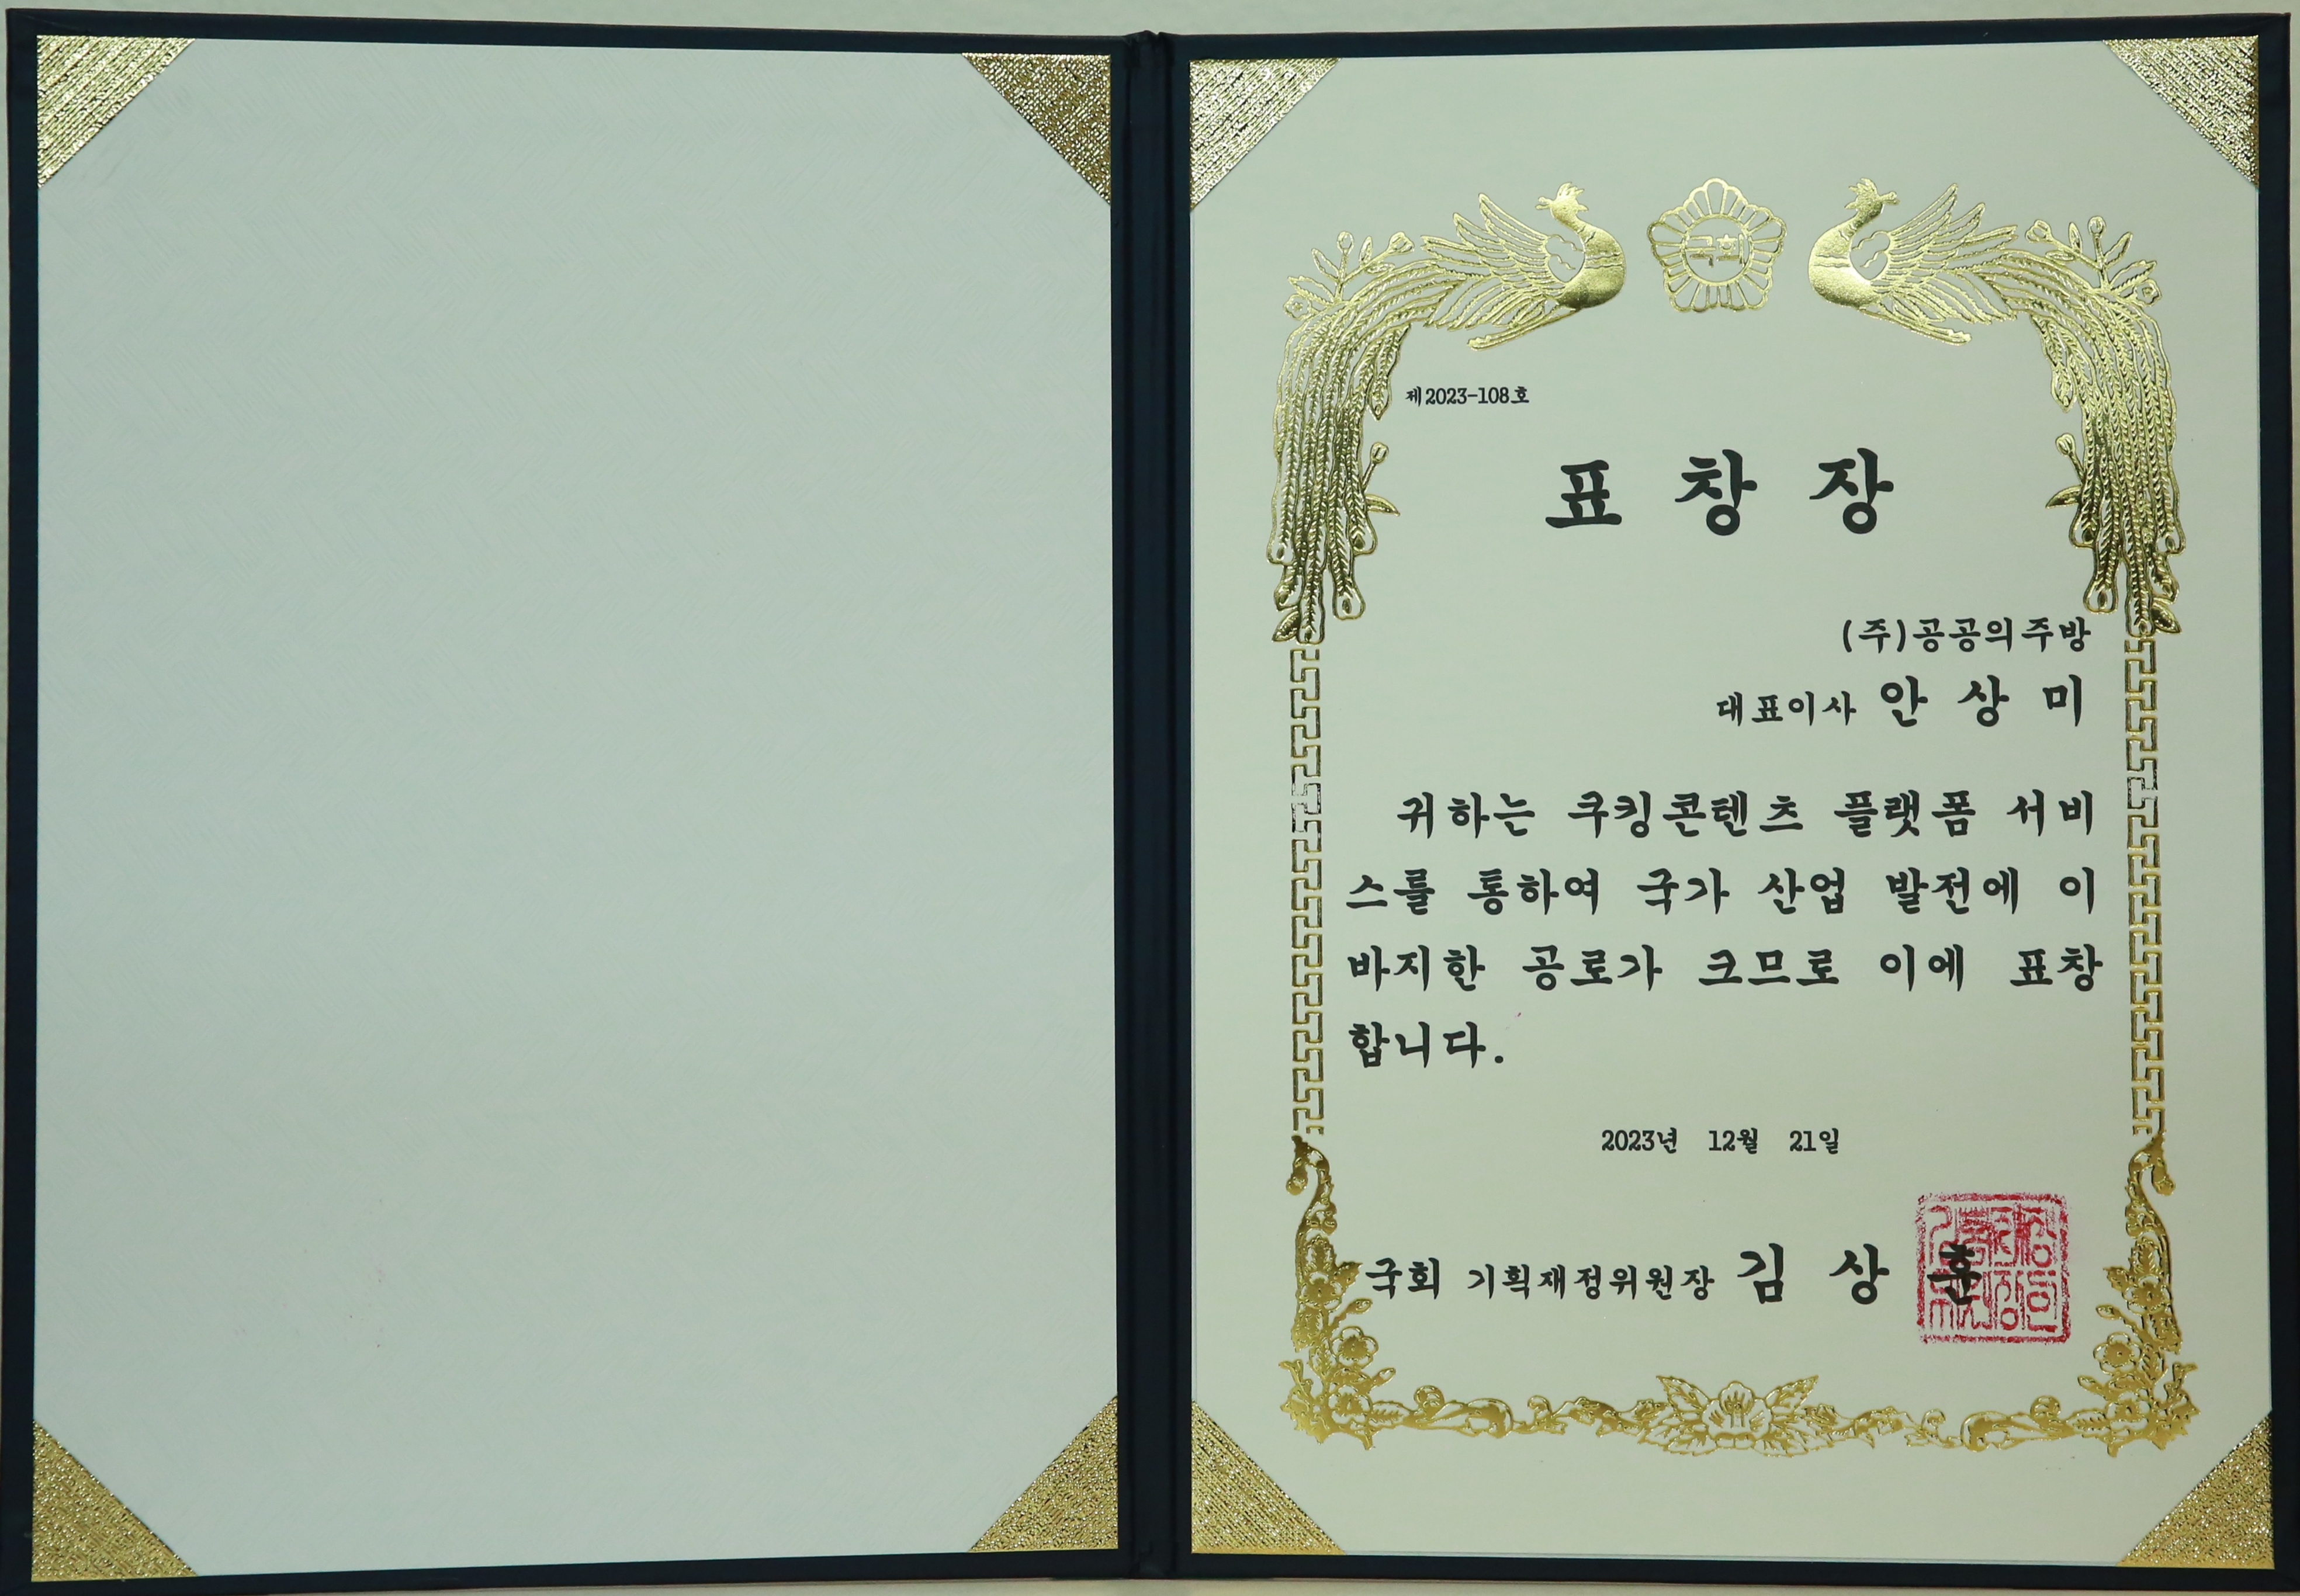 국회
제2023-108호
표 창 장
(주)공공의주방
대표이사 안 상 미
귀하는 쿠킹콘텐츠 플랫폼 서비
스를 통하여 국가 산업 발전에 이
바지한 공로가 크므로 이에 표창
합니다.
2023년 12월 21일
국회 기획재정위원장 김 상 훈